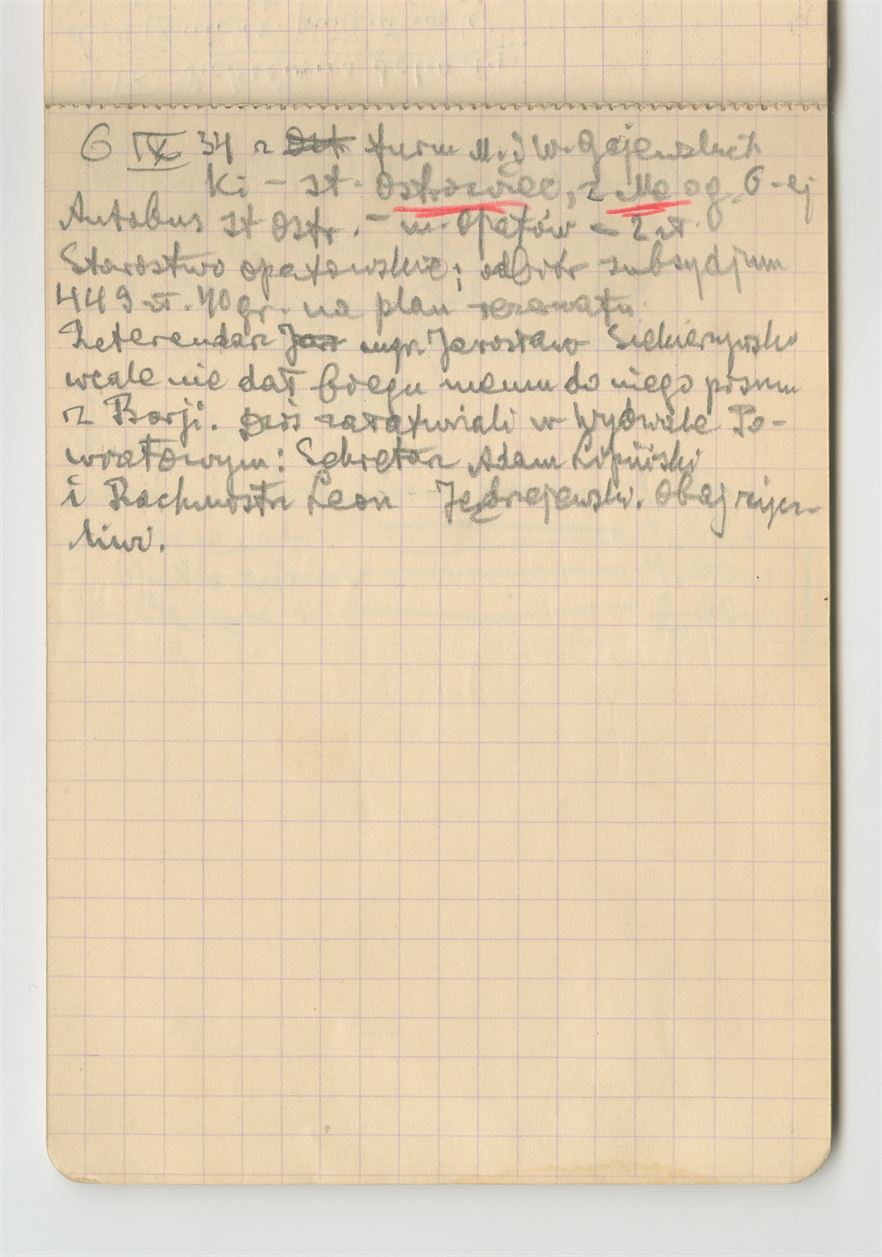 6 IX 34 z furm M. i W. Gajewskich
Ki – st. Ostrowiec, z Me og. 6-ej
Autobus st Ostr. – m. Opatów – 2 zł.
Starostwo opatowskie; odbiór subsydjum
449 zł. 40 gr. na plan rezerwatu.
Referendarz mgr Jarosław
wcale nie dał biegu memu do niego pismu
z Borji. Dziś załatwiali w Wydziale Po-
wiatowym: Sekretarz Adam Lipiński
i Rachmistrz Leon Obaj życz-
liwi.